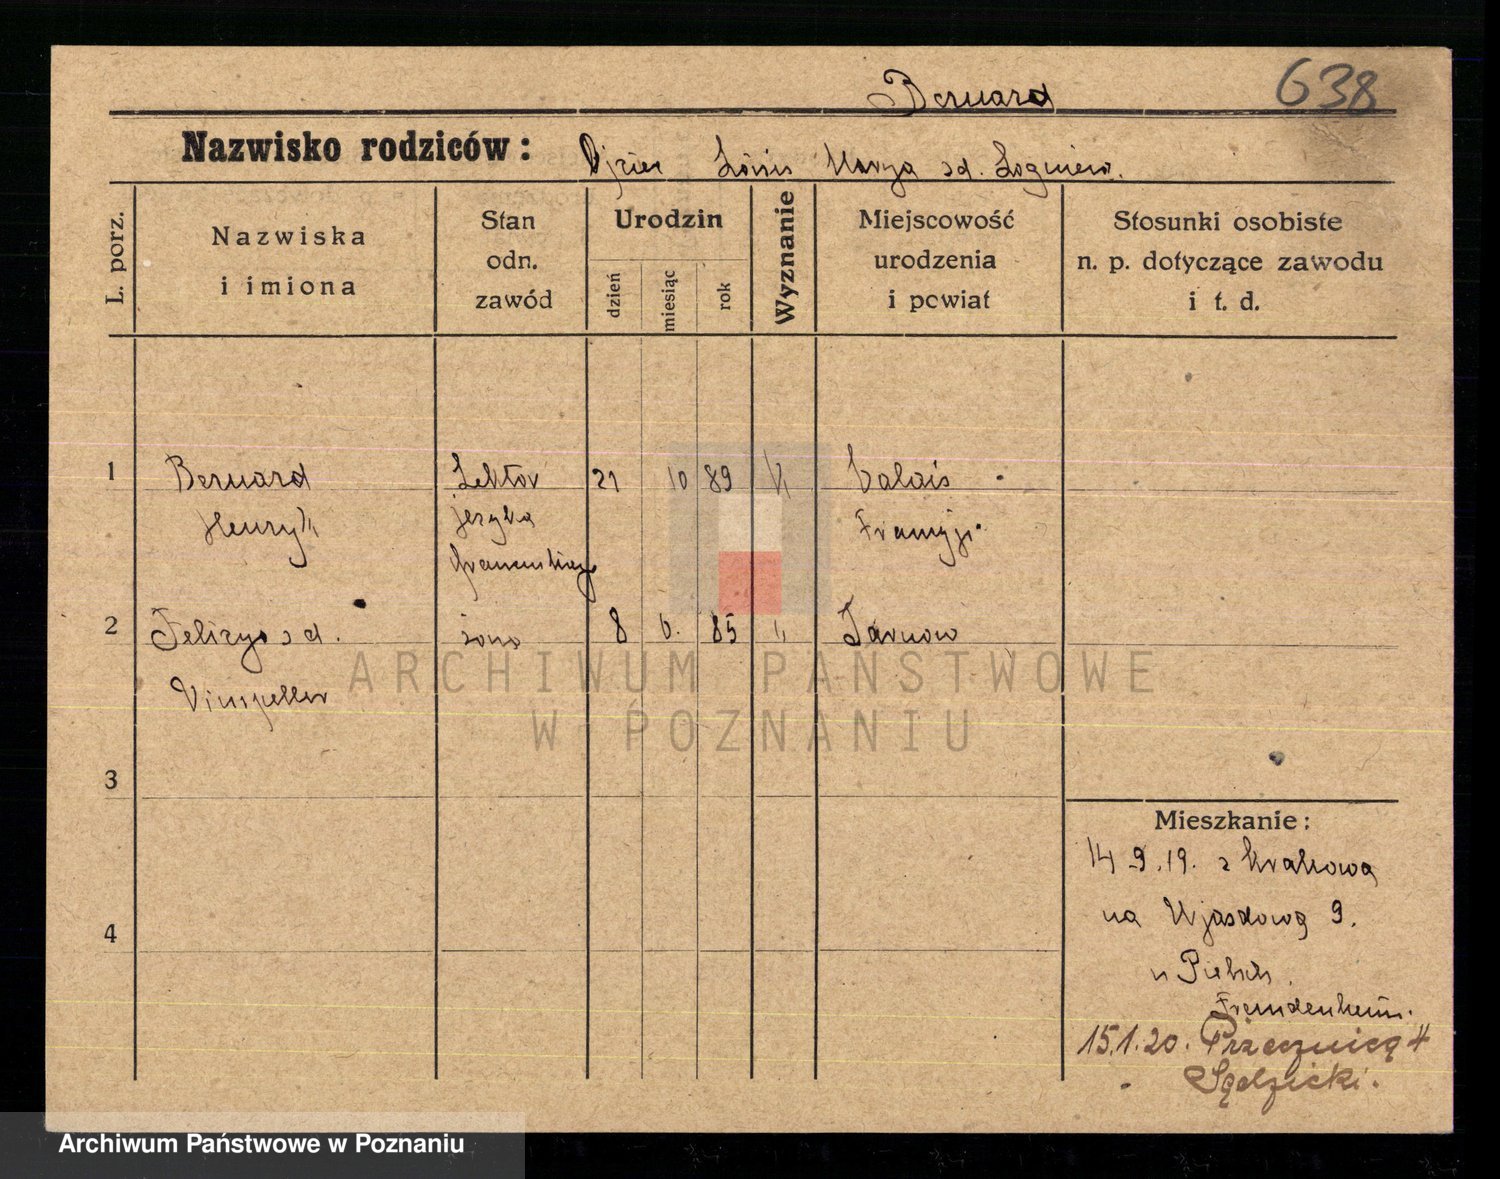 Bernard 638
Nazwisko rodziców: Ojciec Louis Marya z d.
L. porz.
Nazwiska i imiona
Stan odn. zawód
Urodzin
dzień
miesiąc
rok
Wyznanie
Miejscowość urodzenia i powiat
Stosunki osobiste n. p. dotyczące zawodu i t. d.
1 Bernard Lektor 21 10 89 Calais
Henry języka Francyji
francuskiego
2 Felicya z d. żona 8 6. 85 Tarnow
ARCHIWUM PAŃSTWOWE
W POZNANIU
3
Mieszkanie:
14 9.19. z Krakowa
4
na Ujazdową 9.
u
Fremdenheim.
15.1.20. Przecznicą 4
Sądzicki.
Archiwum Państwowe w Poznaniu